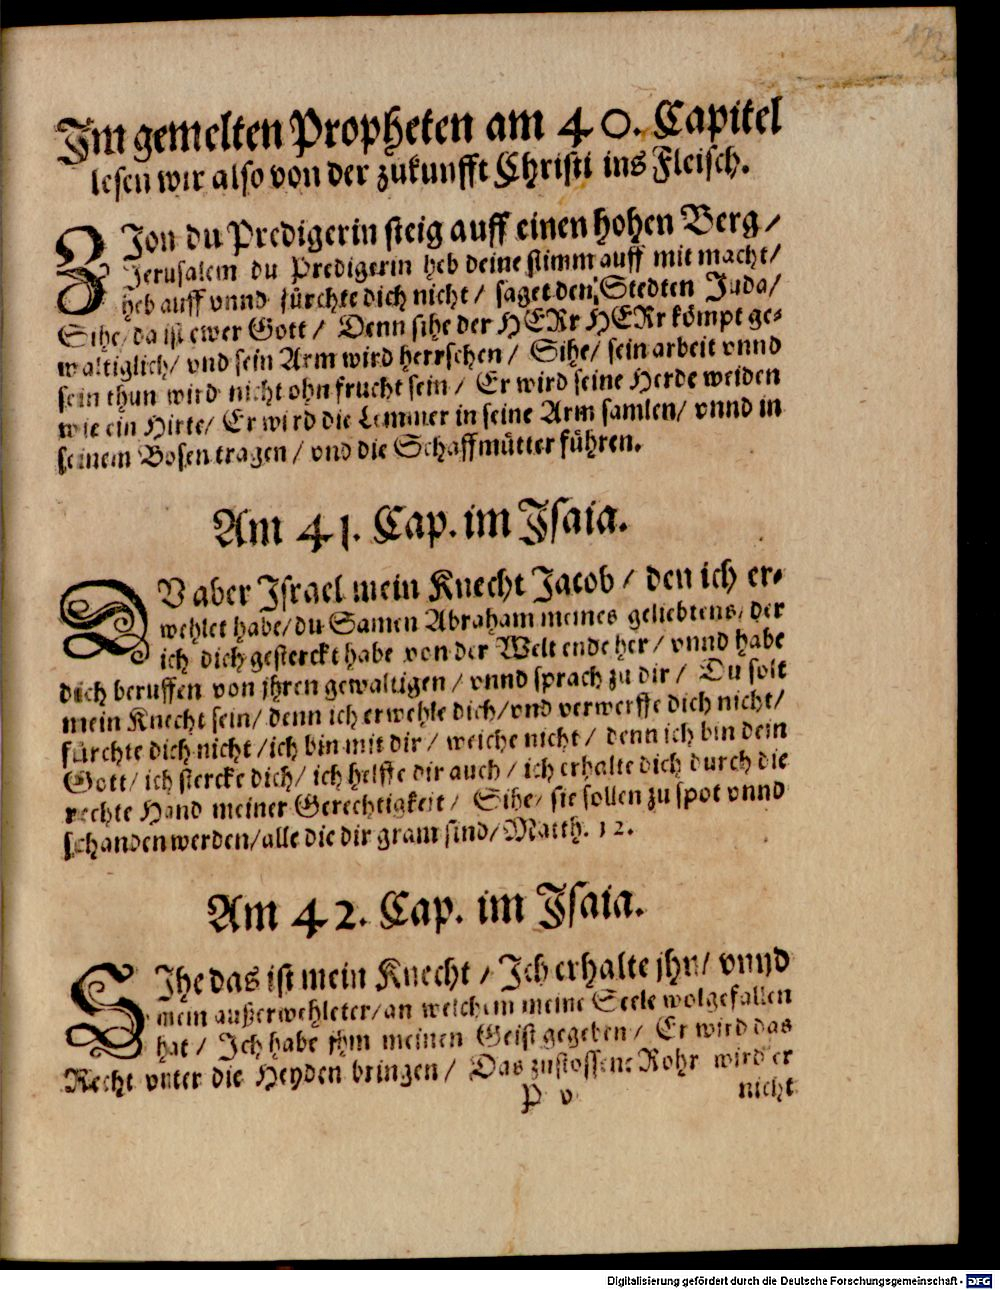 123
Im gemelten Propheten am 40. Capitel
lesen wir also von der zukunfft Christi ins Fleisch.
ZJon du Predigerin steig auff einen hohen Berg /
Jerusalem du Predigerin heb deine stimm auff mit macht /
heb auff vnnd fürchte dich nicht / saget den Stedten Juda /
Sihe / da ist ewer Gott / Denn sihe der HERr HERr kömpt ge⸗
waltiglich / vnd sein Arm wird herrschen / Sihe / sein arbeit vnnd
sein thun wird nicht ohn frucht sein / Er wird seine Herde weiden
wie ein Hirte / Er wird die Lemmer in seine Arm samlen / vnnd in
seinem Bosen tragen / vnd die Schaffmütter führen.
Am 41. Cap. im Jsaia.
DV aber Jsrael mein Knecht Jacob / den ich er⸗
wehlet habe / du Samen Abraham meines geliebtens / der
ich dich gesterckt habe von der Welt ende her / vnnd habe
dich beruffen von jhren gewaltigen / vnnd sprach zu dir / Du solt
mein Knecht sein / denn ich erwehle dich / vnd verwerffe dich nicht /
fürchte dich nicht / ich bin mit dir / weiche nicht / denn ich bin dein
Gott / ich stercke dich / ich helffe dir auch / ich erhalte dich durch die
rechte Hand meiner Gerechtigkeit / Sihe / sie sollen zu spot vnnd
schanden werden / alle die dir gram sind / Matth. 12.
Am 42. Cap. im Jsaia.
SJhe das ist mein Knecht / Jch erhalte jhn / vnnd
mein außerwehleter / an welchem meine Seele wolgefallen
hat / Jch habe jhm meinen Geist gegeben / Er wird das
Recht vnter die Heyden bringen / Das zustossene Rohr wird er
P v nicht
Digitalisierung gefördert durch die Deutsche Forschungsgemeinschaft - DFG